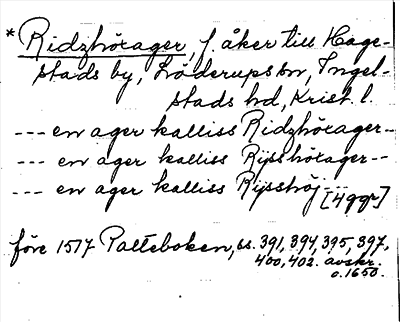 * Ridzhörager, f. åker till Hage-
stads by, Löderups sn, Ingel-
stads hd, Krist. l.
--- en ager kalliss Ridzhörager--
--- en ager kalliss Rijsshörager--
--- en ager kalliss Rijsshöj--
[4 ggr]
före 1517 Palteboken, ss. 391, 394, 395, 397,
400, 402. avskr.
c. 1650.